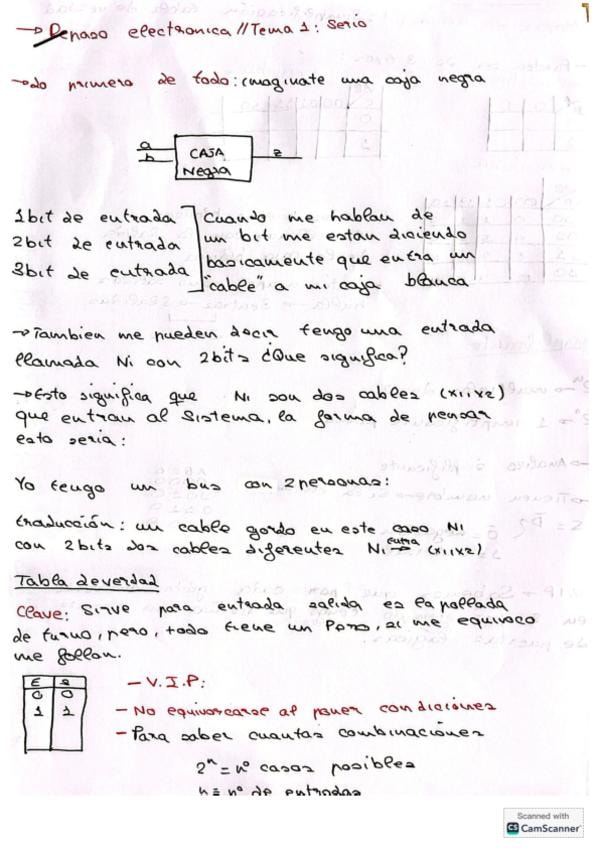 → Repaso electronica // Tema 1: serio
→ Lo primero de todo: imaginate una caja negra
a
b
CAJA
Negra
z
1 bit de entrada
2 bit de entrada
3 bit de entrada
Cuando me hablan de
un bit me estan diciendo
basicamente que entra un
"cable" a mi caja blanca
→ Tambien me pueden decir tengo una entrada
llamada Ni con 2bits ¿Que significa?
→ Esto significa que Ni son dos cables (x1,x2)
que entran al sistema, la forma de pensar
esto seria:
Yo tengo un bus con 2 personas:
traducción: un cable gordo en este caso Ni
con 2bits dos cables diferentes Ni entra → (x1,x2)
Tabla de verdad
Clave: Sirve para entrada salida es la pollada
de turno, pero, todo tiene un Pero, si me equivoco
me follan.
E S
0 0
1 1
- V.I.P:
- No equivorcarse al poner condiciones
- Para saber cuantas combinaciones
2ⁿ = nº casos posibles
n = nº de entradas
Scanned with
CS CamScanner